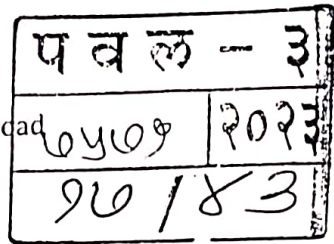 प व ल - ३
cad
७५७१ २०२३
१७ / ४३